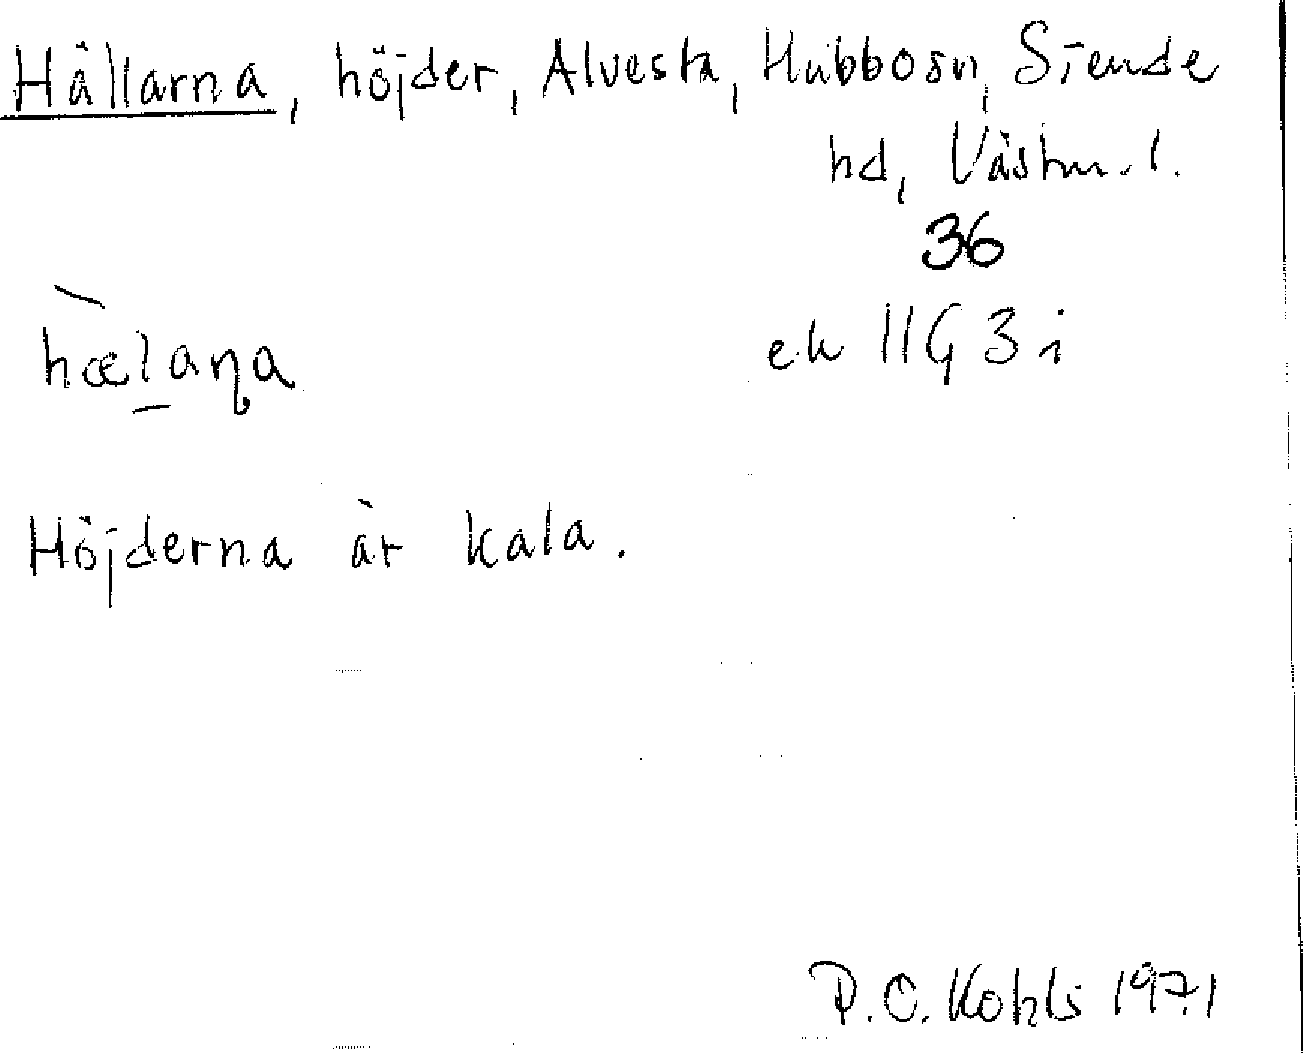 Hällarna, höjder, Alvesta, Hubbo sn, Siende
hd, Västm. l.
36
hæl̠aṇa
ek 11G 3 i
Höjderna är kala.
P.O. Kohls 1971